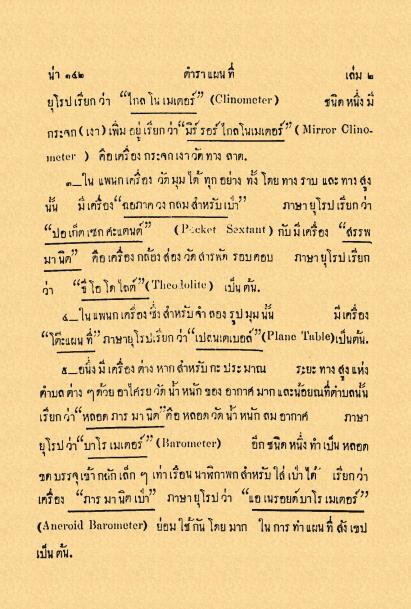 น่า ๑๔๒ ตำราแผนที่ เล่ม ๒
ยุโรปเรียกว่า “ไกลโนเมเตอร์” (Clinometer) ชนิดหนึ่งมี
กระจก (เงา) เพิ่มอยู่เรียกว่า “มิร์รอร์ไกลโนเมเตอร์” (Mirror Clino-
meter) คือเครื่องกระจกเงาวัดทางลาด.
๓_ใน แพนกเครื่องวัดมุมได้ทุกอย่าง ทั้งโดยทางราบ และทางสูง
นั้น มีเครื่อง “ฉอภาควงกลมสำหรับเป๋า” ภาษายุโรปเรียกว่า
“ปอเก็ตเซกค์แตนต์” (Pocket Sextant) กับมีเครื่อง “สรรพ
มานิต” คือเครื่องกล้องส่องวัดสารพัดรอบคอบ ภาษายุโรปเรียก
ว่า “ธีโอโดไลต์” (Theodolite) เป็นต้น.
๔_ในแพนกเครื่องซึ่งสำหรับจำลองรูปมุมนั้น มีเครื่อง
“โต๊ะแผนที่” ภาษายุโรปเรียกว่า “เปลนเตเบอล์” (Plane Table) เป็นต้น.
๕_อนึ่งมีเครื่องต่างหากสำหรับกะประมาณ ระยะทางสูงแห่ง
ตำบลต่าง ๆ ด้วยอาไศรยวัดน้ำหนักของอากาศมากและน้อยณที่ตำบลนั้น
เรียกว่า “หลอดภารมานิต” คือหลอดวัดน้ำหนักลมอากาศ ภาษา
ยุโรปว่า “บาโรเมเตอร์” (Barometer) อีกชนิดหนึ่งทำเป็นหลอด
ขดบรรจุเข้าตลับเล็ก ๆ เท่าเรือนนาฬิกาพกสำหรับใส่เป๋าได้ เรียกว่า
เครื่อง “ภารมานิตเป๋า” ภาษายุโรปว่า “แอเนรอยด์บาโรเมเตอร์”
(Aneroid Barometer) ย่อมใช้กันโดยมาก ในการทำแผนที่สังเขป
เป็นต้น.